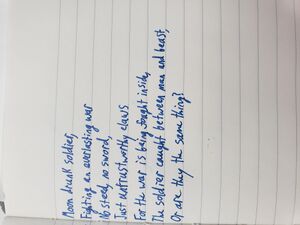 Moon drunk soldier,
Fighting an everlasting war
No steed, no sword,
Just untrustworthy claws
For the war is being fought inside,
The soldier caught between man and beast,
Or are they the same thing?